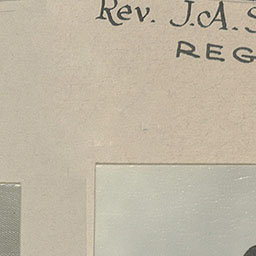 Rev. J.A. S
REG